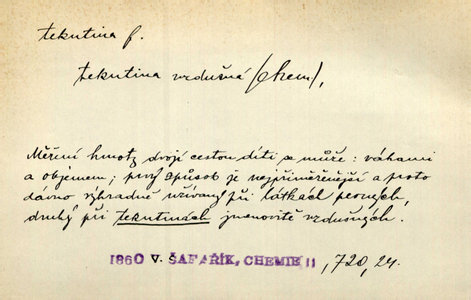 tekutina f.
tekutina vzdušná (chem),
Měření hmoty dvojí cestou díti se může: váhami
a objemem; prvý spůsob je nejpřiměřenější a proto
dávno výhradně užívaný při látkách pevných,
druhý při tekutinách jmenovitě vzdušných.
1860 V. ŠAFAŘÍK, CHEMIE II, 720, 24.